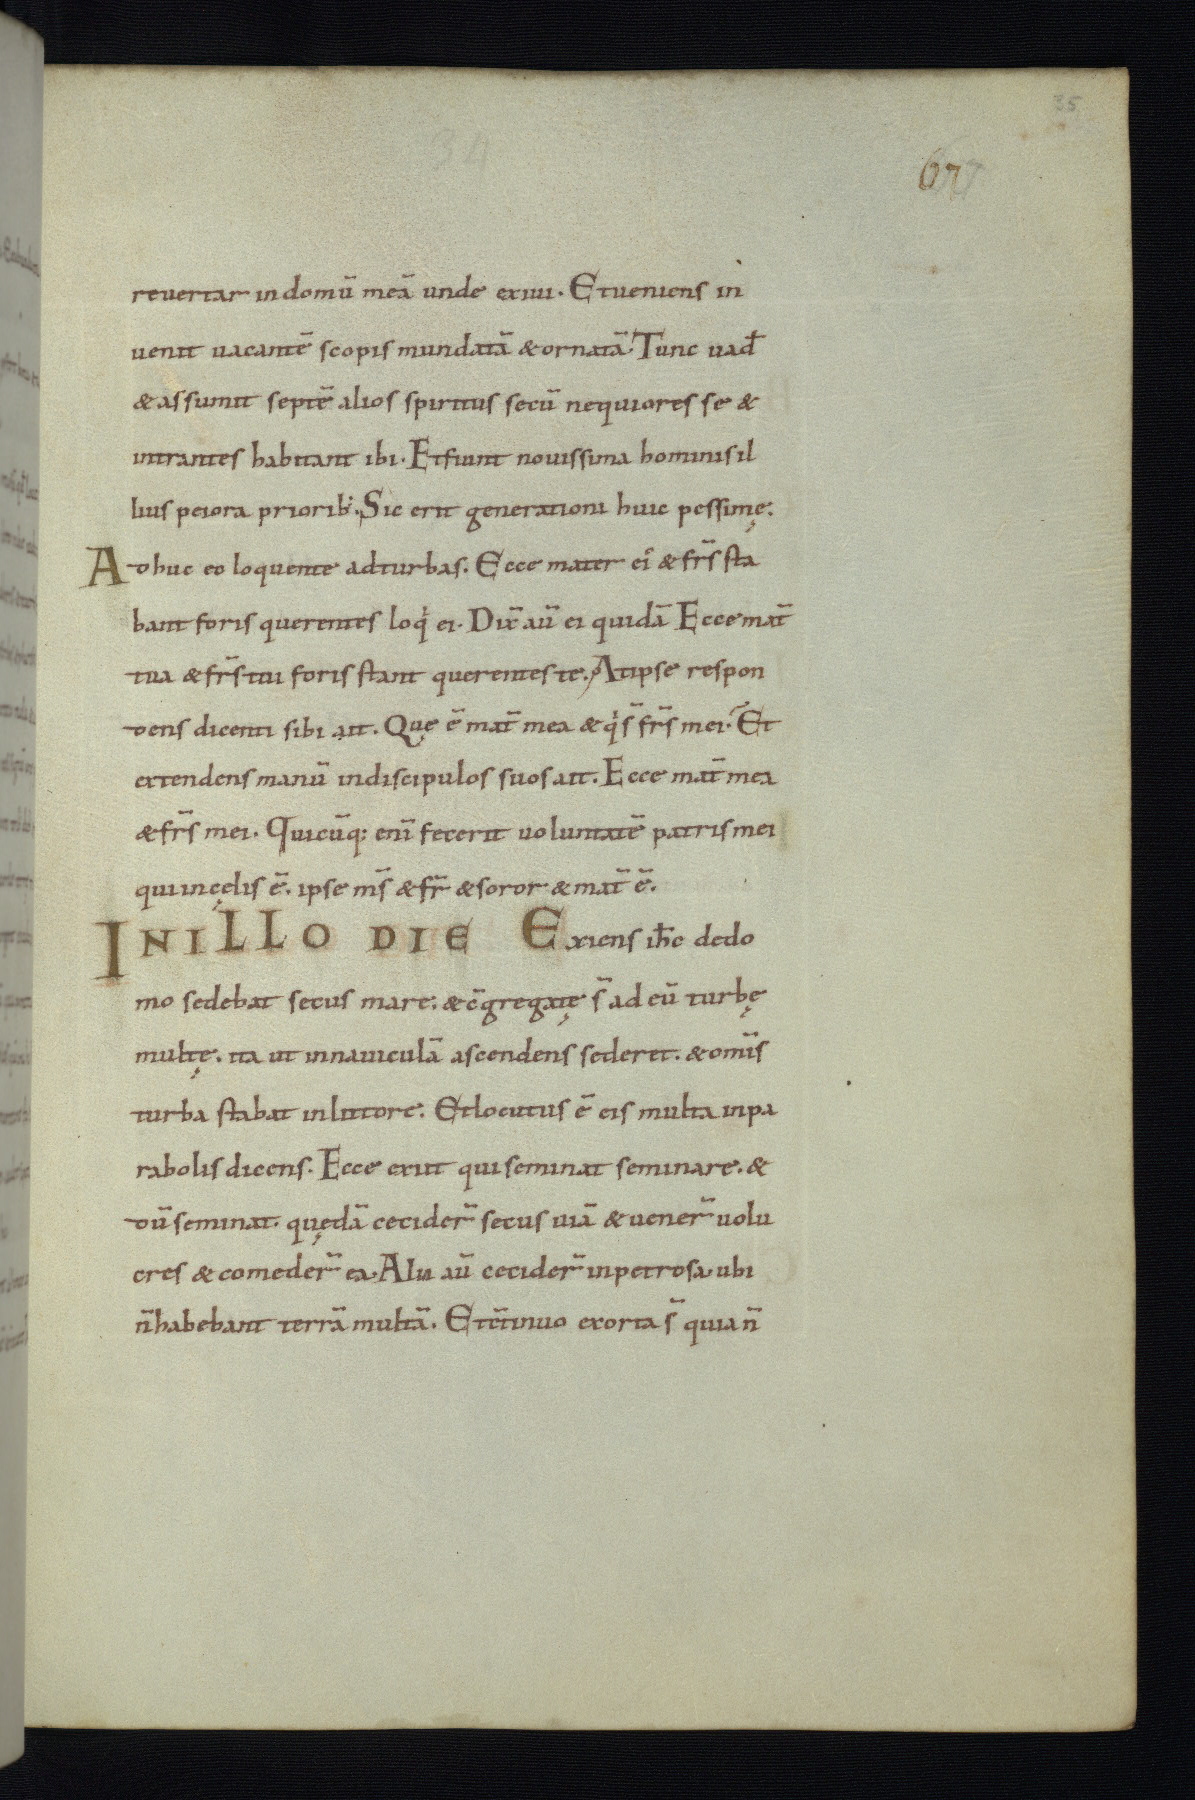 35
34
67
reuertar in domū meā unde exiui. Et ueniens in
uenit uacantē scopis mundatā & ornatā. Tunc uad̄
& assumit septē alios spiritus secū nequiores se &
intrantes habitant ibi. Et fiunt nouissima hominis il
lius peiora priorib;. Sic erit generationi huic pessimę.
Adhuc eo loquente ad turbas. Ecce mater ei᾽ & fr̄s sta
bant foris querentes loqͥ ei. Dix̄ aū ei quidā Ecce mat̄
tua & fr̄s tui foris stant querentes te. At ipse respon
dens dicenti sibi ait. Quę ē mat̄ mea & qͥ s̄ fr̄s mei. Et
extendens manū in discipulos suos ait. Ecce mat̄ mea
& fr̄s mei. Quicūq; enī fecerit uoluntatē patris mei
qui in cęlis ē. ipse m̄s & fr̄ & soror & mat̄ ē.
IN ILLO DIE Exiens ih̄c de do
mo sedebat secus mare. & c̄gregatę s̄ ad eū turbę
multę. ita ut in nauiculā ascendens sederet. & om̄is
turba stabat in littore. Et locutus ē eis multa in pa
rabolis dicens. Ecce exiit qui seminat seminare. &
dū seminat. quędā cecider̄ secus uiā & uener̄ uolu
cres & comeder̄ ea. Alia aū cecider̄ in petrosa. ubi
n̄ habebant terrā multā. Et c̄tinuo exorta s̄ quia n̄